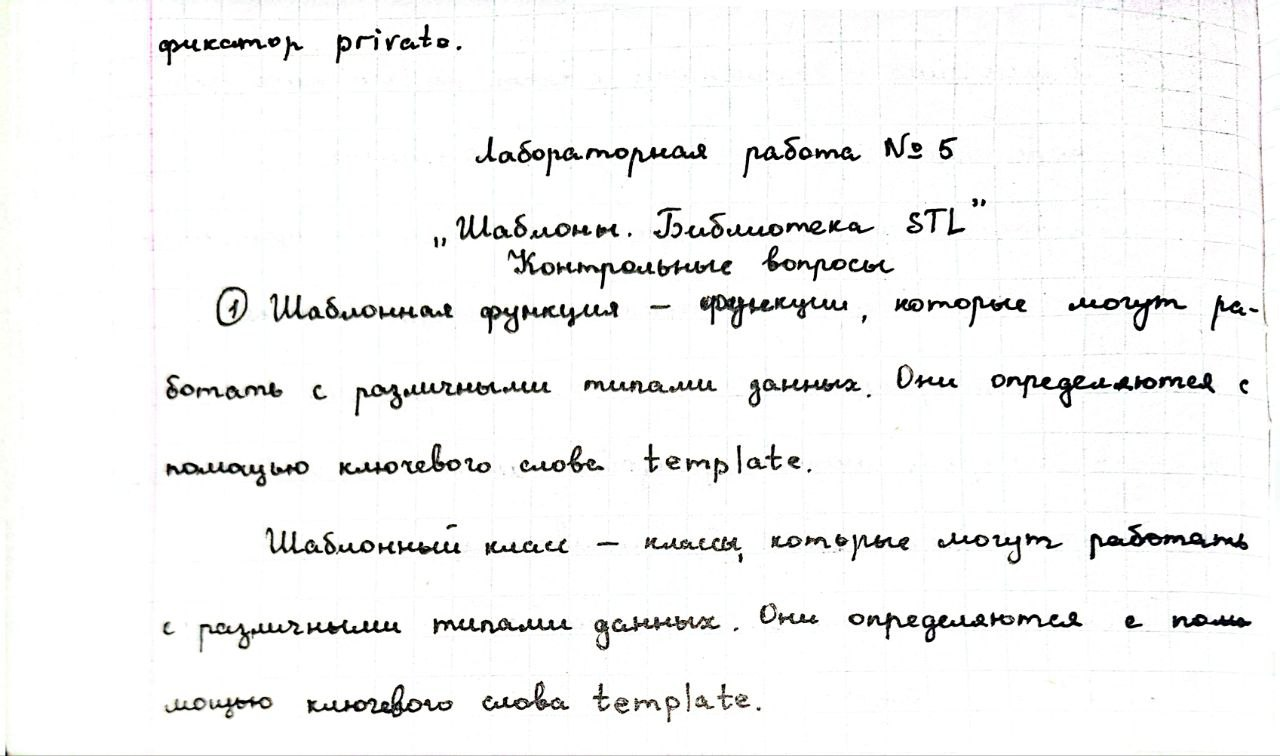 фикатор private.
Лабораторная работа № 5
„Шаблоны. Библиотека STL”
Контрольные вопросы
① Шаблонная функция – функции, которые могут ра-
ботать с различными типами данных. Они определяются с
помощью ключевого слова template.
Шаблонный класс – классы, которые могут работать
с различными типами данных. Они определяются с по
мощью ключевого слова template.